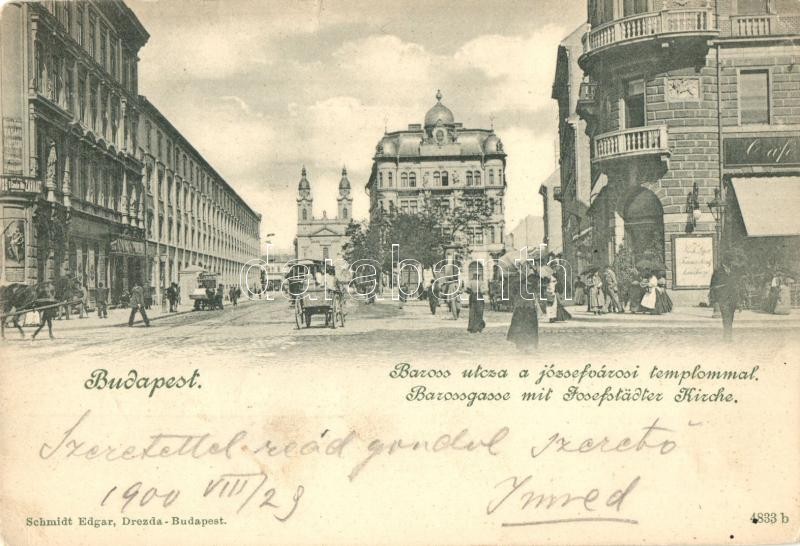 Café
databanth
Budapest.
Baross utcza a józsefvárosi templommal.
Barossgasse mit Josefstädter Kirche.
Szeretettel reád gondol szerető
1900 VIII/29
Imred
Schmidt Edgar, Drezda-Budapest.
4833 b